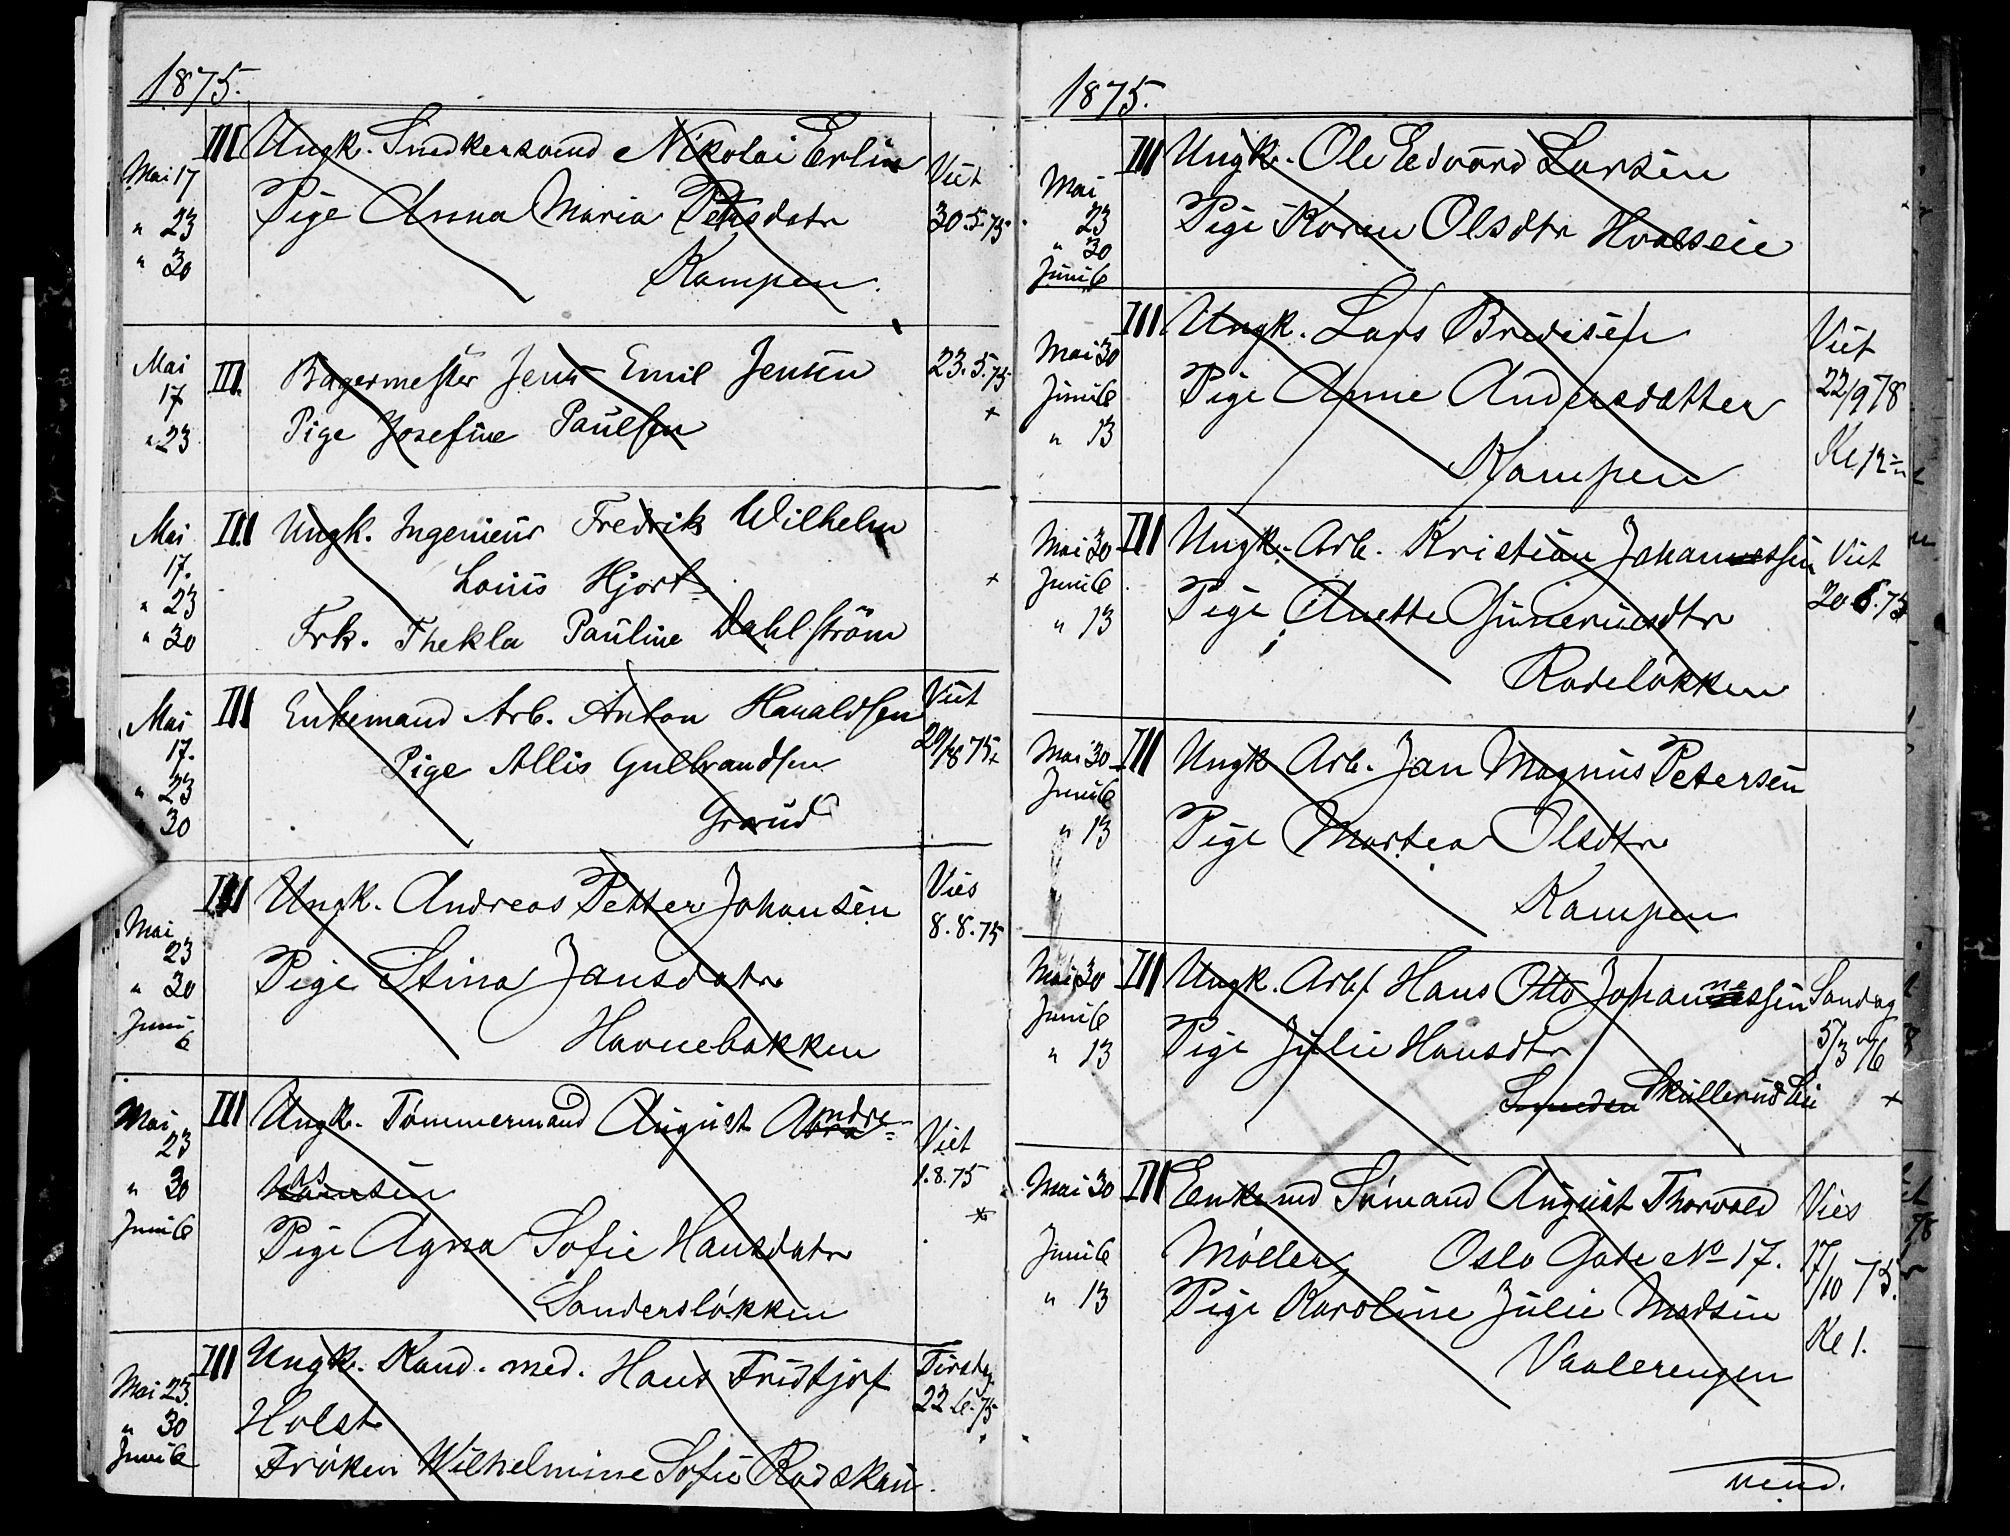 1875.
Mai 17 III Ungk. Snedkersvend Nikolai Erlin Viet
" 23 Pige Anna Maria Petersdatr 30.5.75
" 30 Kampen.
Mai III. Bagermester Jens Emil Jensen 23.5.75
17. Pige Josefine Paulsen +
" 23
Mai III Ungk. Ingenieur Fredrik Wilhelm
17. Louis Hjort +
" 23
" 30 Frk. Thekla Pauline Dahlström
Mai III Enkemand Arb. Anton Haraldsen Viet
17. Pige Allis Gulbrandsen 29/8 75 +
" 23
30 Grorud
III Ungk. Andreas Petter Johansen Vies
Mai 8.8.75
23 Pige Stina Jansdatr
" 30
Juni 6 Havnebakken
Mai III Ungk. Tømmermand August Andre- Viet
23 1.8.75
" 30 assen +
Juni 6 Pige Agna Sofie Hansdatr
Sandersløkken
III Ungk. Kand. med. Hans Fridtjof Tirsdag
Mai 23. Holst 22.6.75
" 30
Juni 6 Frøken Wilhelmine Sofie Rodskau.
1875.
III Ungk. Ole Edvard Larsen
Mai
23 Pige Karen Olsdtr Hvalseie
" 30
Juni 6
III Ungk. Lars Bredesen Viet
Mai 30 22/9 78
Juni 6 Pige Anne Andersdatter Kl 12
" 13 Kampen
Mai 30 III Ungk. Arb. Kristian Johannessen Viet
Juni 6 Pige Anette Gunerusdtr 20.6.75
" 13
Rodeløkken
Mai 30 III Ungk Arb. Jan Magnus Petersen
Juni 6
" 13 Pige Martea Olsdtr
Kampen
Mai 30 III Ungk. Arb. Hans Otto Johannessen Søndag
Juni 6 5/3 76
" 13 Pige Julie Hansdtr
Skullerud Lie +
Mai 30 III Enkemd Sømand August Thorvald Vies
Juni 6 Møller, Oslo Gade No 17. 17/10 75.
" 13 Pige Karoline Julie Madsen Kl 1.
Vaalerengen
vend.